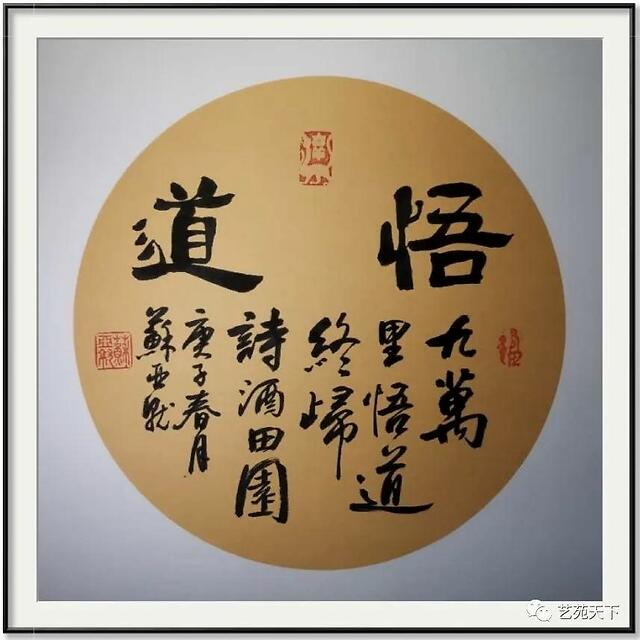 悟道
九萬
里悟道
終歸
詩酒田園
庚子春月
蘇亞
艺苑天下